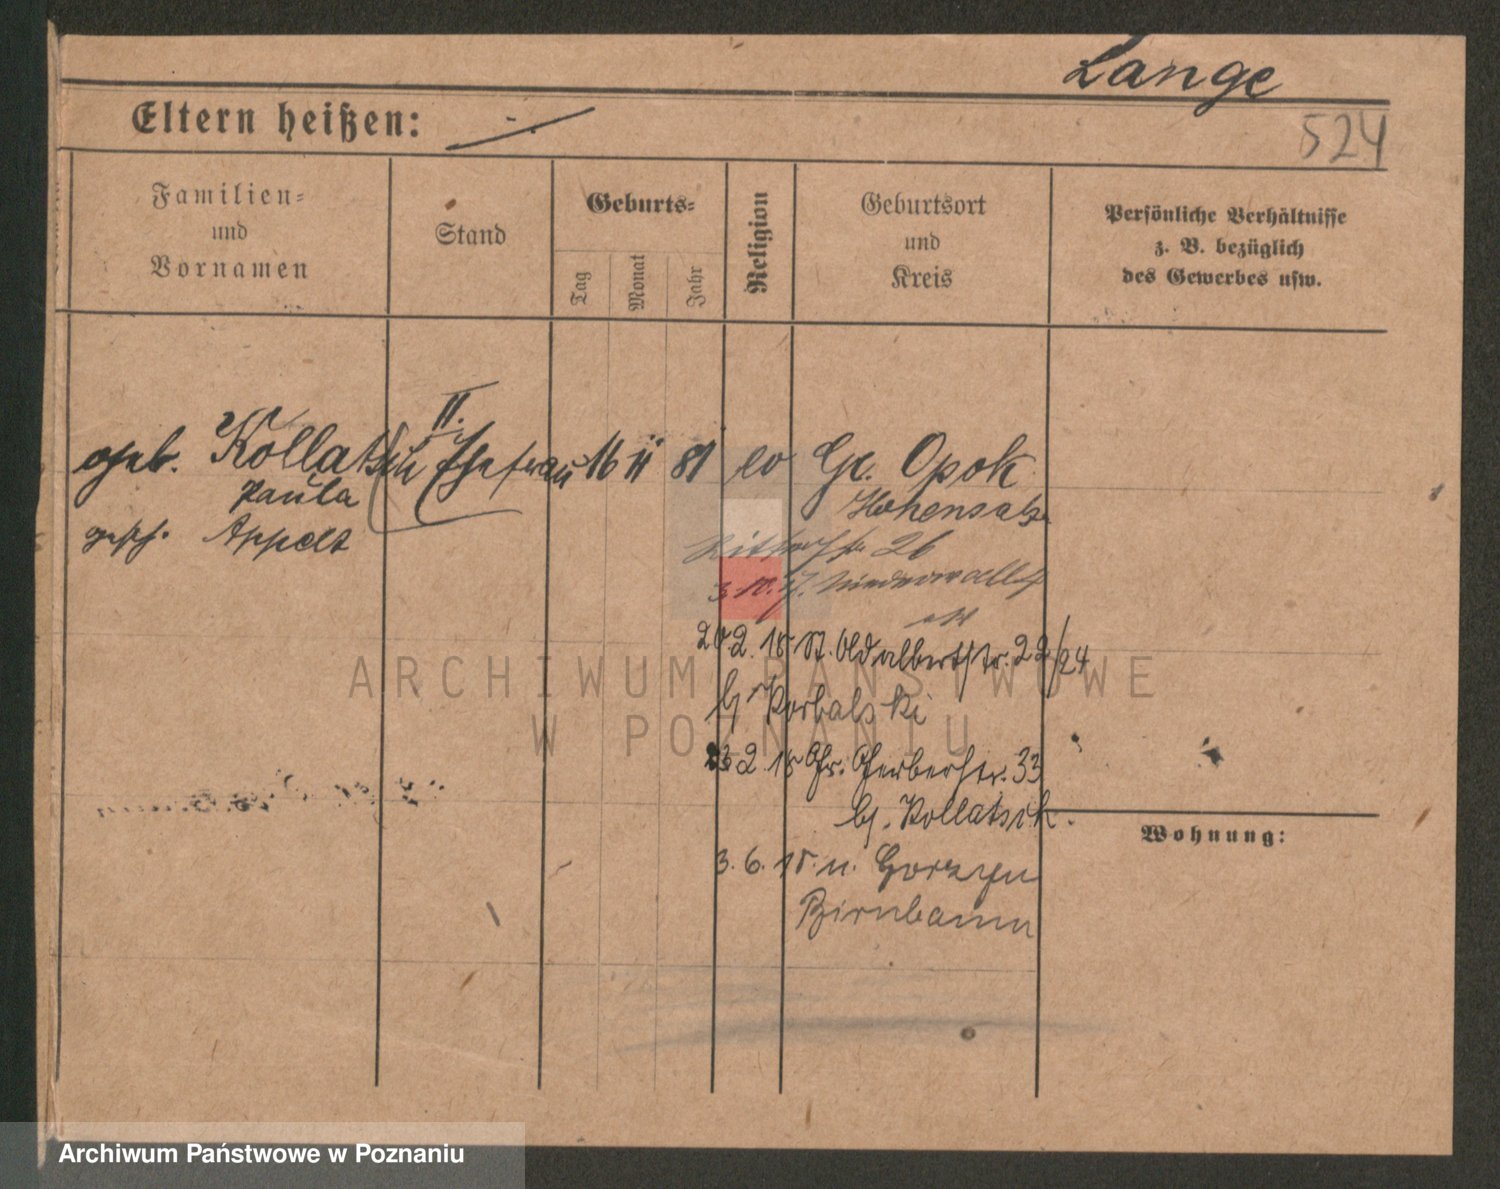 Lange
524
Eltern heißen: -.
Familien=
und
Vornamen
Stand
Geburts=
Tag
Monat
Jahr
Religion
Geburtsort
und
Kreis
Persönliche Verhältnisse
z. B. bezüglich
des Gewerbes usw.
geb. Kollatsch II. Ehefrau 16 11 81 ev Gr. Opok
Paula Hohensalza
gesch. Appelt
Ritterstr. 26
3.10.17.
20.2.18 St. Adalbertstr. 22/24
b/
23 2.18 Gr. Gerberstr. 33
b/. Kollatsch.
3.6.18. n. Gorzyn
Birnbaum
Wohnung:
ARCHIWUM PAŃSTWOWE
W POZNANIU
Archiwum Państwowe w Poznaniu